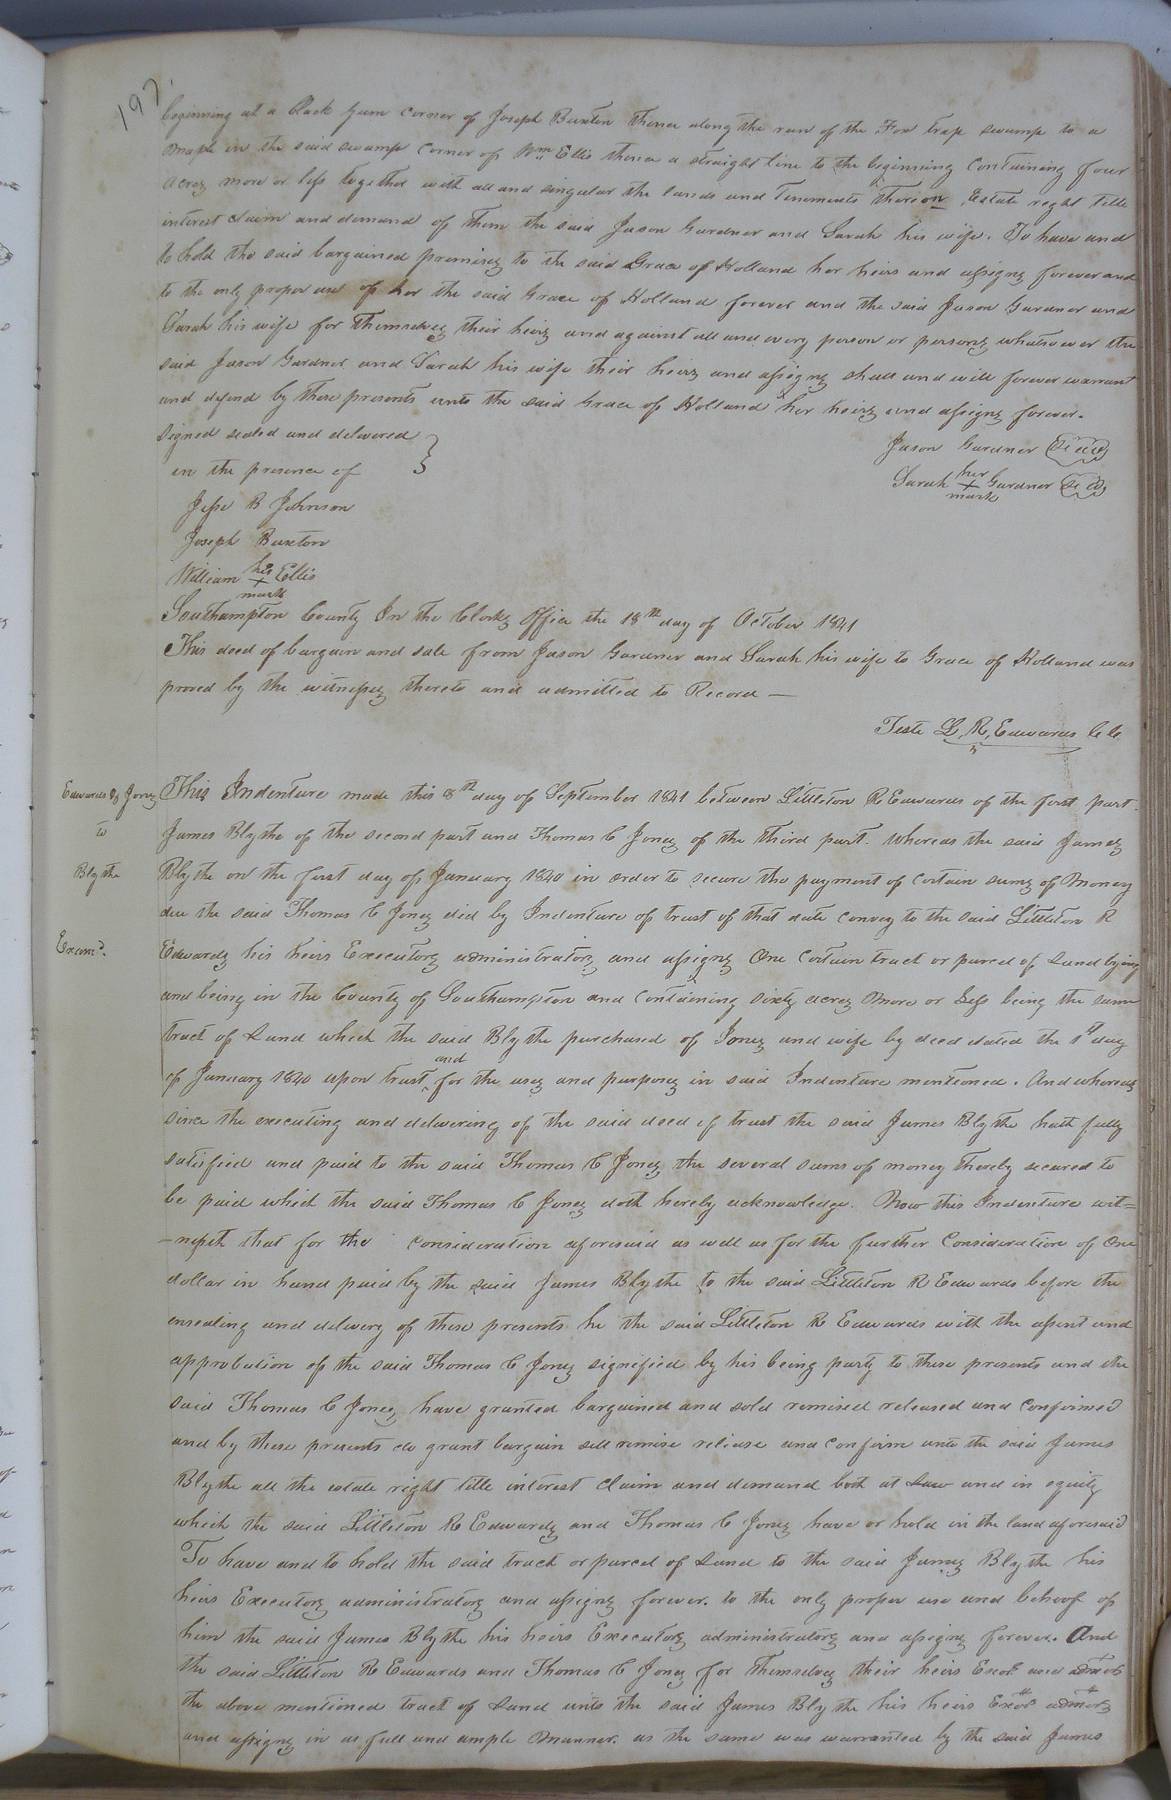 197.
beginning at a Black Gum corner of Joseph Buxton thence along the run of the Fox trap swamp to a
maple in the said swamp corner of Wm Ellis thence a straight line to the beginning containing four
acres more or less together with all and singular the lands and tenements thereon Estate right title
interest claim and demand of them the said Jason Gardner and Sarah his wife. To have and
to hold the said bargained premises to the said Grace of Holland her heirs and assigns forever and
to the only proper use of her the said Grace of Holland forever and the said Jason Gardner and
Sarah his wife for themselves their heirs and against all and every person or persons whatsoever the
said Jason Gardner and Sarah his wife their heirs and assigns shall and will forever warrant
and defend by these presents unto the said Grace of Holland her heirs and assigns forever.
Signed sealed and delivered } Jason Gardner Seal
in the presence of Sarah her x mark Gardner Seal
Jesse B Johnson
Joseph Buxton
William his x mark Ellis
Southampton County In the Clerks Office the 18th day of October 1841
This deed of bargain and sale from Jason Gardner and Sarah his wife to Grace of Holland was
proved by the witnesses thereto and admitted to Record —
Teste L. R. Edwards C C
Edwards & Jones
to
Blythe
Examd.
This Indenture made this 8th day of September 1841 between Littleton R Edwards of the first part
James Blythe of the second part and Thomas C Jones of the third part. Whereas the said James
Blythe on the first day of January 1840 in order to secure the payment of certain sums of money
due the said Thomas C Jones did by Indenture of trust of that date convey to the said Littleton R
Edwards his heirs Executors administrators and assigns One certain tract or parcel of Land lying
and being in the County of Southampton and containing sixty acres more or less being the same
tract of Land which the said Blythe purchased of Jones and wife by deed dated the 1st day
of January 1840 upon trust and for the uses and purposes in said Indenture mentioned. And whereas
since the executing and delivering of the said deed of trust the said James Blythe hath fully
satisfied and paid to the said Thomas C Jones the several sums of money thereby secured to
be paid which the said Thomas C Jones doth hereby acknowledge. Now this Indenture wit=
-nesseth that for the consideration aforesaid as well as for the further Consideration of One
dollar in hand paid by the said James Blythe to the said Littleton R Edwards before the
ensealing and delivery of these presents he the said Littleton R Edwards with the assent and
approbation of the said Thomas C Jones signified by his being party to these presents and the
said Thomas C Jones have granted bargained and sold remised released and confirmed
and by these presents do grant bargain sell remise release and confirm unto the said James
Blythe all the estate right title interest claim and demand both at Law and in equity
which the said Littleton R Edwards and Thomas C Jones have or hold in the land aforesaid
To have and to hold the said tract or parcel of Land to the said James Blythe his
heirs Executors administrators and assigns forever. to the only proper use and behoof of
him the said James Blythe his heirs Executors administrators and assigns forever. And
the said Littleton R Edwards and Thomas C Jones for themselves their heirs Exors and admors
the above mentioned tract of Land unto the said James Blythe his heirs Exors admors
and assigns in as full and ample manner as the same was warranted by the said James